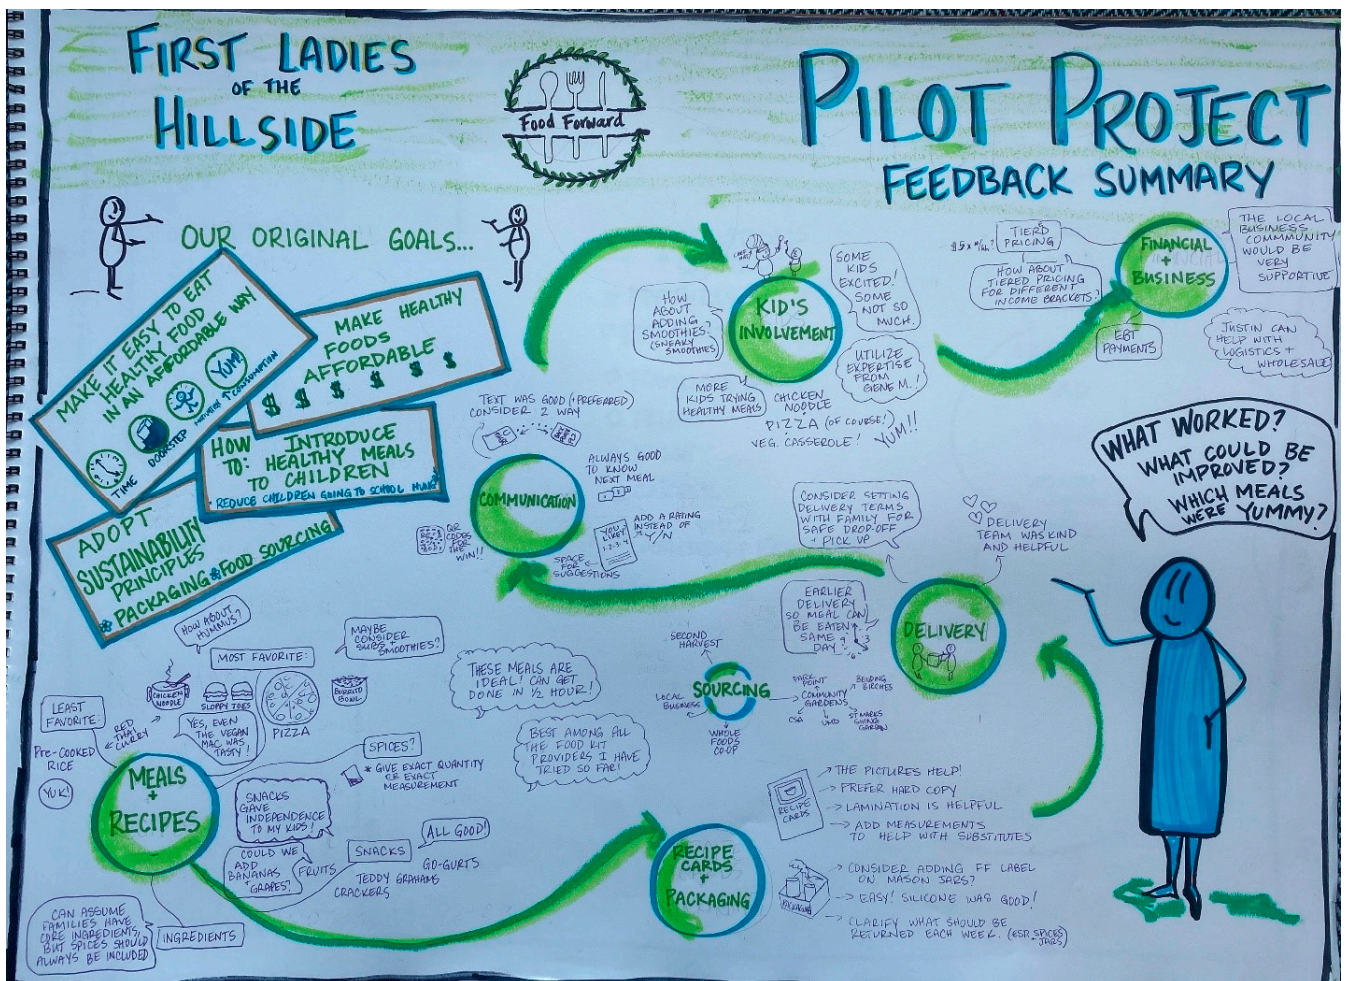 FIRST LADIES
OF THE
HILLSIDE
Food Forward
PILOT PROJECT
FEEDBACK SUMMARY
OUR ORIGINAL GOALS...
MAKE IT EASY TO EAT
HEALTHY FOOD
IN AN AFFORDABLE WAY
TIME
DOORSTEP
YUM!
CONSUMPTION
MAKE HEALTHY
FOODS
AFFORDABLE
$ $ $ $ $
HOW INTRODUCE
TO: HEALTHY MEALS
TO CHILDREN
* REDUCE CHILDREN GOING TO SCHOOL HUNGRY
ADOPT
SUSTAINABILITY
PRINCIPLES
* PACKAGING * FOOD SOURCING
KID'S
INVOLVEMENT
HOW
ABOUT
ADDING
SMOOTHIES?
(SNEAKY
SMOOTHIES)
SOME
KIDS
EXCITED!
SOME
NOT SO
MUCH.
UTILIZE
EXPERTISE
FROM
GENE M.!
MORE
KIDS TRYING
HEALTHY MEALS
CHICKEN
NOODLE
PIZZA (OF COURSE!)
VEG. CASSEROLE!
YUM!!
FINANCIAL
+
BUSINESS
TIERD
PRICING
HOW ABOUT
TIERED PRICING
FOR DIFFERENT
INCOME BRACKETS?
EBT
PAYMENTS
THE LOCAL
BUSINESS
COMMMUNITY
WOULD BE
VERY
SUPPORTIVE
JUSTIN CAN
HELP WITH
LOGISTICS +
WHOLESALE
WHAT WORKED?
WHAT COULD BE
IMPROVED?
WHICH MEALS
WERE YUMMY?
COMMUNICATION
TEXT WAS GOOD (+ PREFERRED)
CONSIDER 2 WAY
ALWAYS GOOD
TO KNOW
NEXT MEAL
ADD A RATING
INSTEAD OF
Y/N
YOU
LIKEY?
1-2-3-4
SPACE
FOR
SUGGESTIONS
QR
CODES
FOR THE
WIN!!
DELIVERY
CONSIDER SETTING
DELIVERY TERMS
WITH FAMILY FOR
SAFE DROP-OFF
+ PICK UP
DELIVERY
TEAM WAS KIND
AND HELPFUL
EARLIER
DELIVERY
SO MEAL CAN
BE EATEN
SAME
DAY
SOURCING
SECOND
HARVEST
LOCAL
BUSINESS
WHOLE
FOODS
CO-OP
COMMUNITY
GARDENS
PARK
POINT
BENDING
BIRCHES
CSA
UMD
ST MARKS
GIVING
GARDEN
MEALS
+
RECIPES
HOW ABOUT
HUMMUS?
MOST FAVORITE:
MAYBE
CONSIDER
SUBS +
SMOOTHIES?
CHICKEN
NOODLE
SLOPPY JOES
PIZZA
BURRITO
BOWL
LEAST
FAVORITE:
RED
THAI
CURRY
PRE-COOKED
RICE
YUK!
YES, EVEN
THE VEGAN
MAC WAS
TASTY!
THESE MEALS ARE
IDEAL! CAN GET
DONE IN ½ HOUR!
BEST AMONG ALL
THE FOOD KIT
PROVIDERS I HAVE
TRIED SO FAR!
SPICES?
* GIVE EXACT QUANTITY
OR EXACT
MEASUREMENT
SNACKS
GAVE
INDEPENDENCE
TO MY KIDS!
COULD WE
ADD
BANANAS
+
GRAPES?
FRUITS
SNACKS
ALL GOOD!
GO-GURTS
TEDDY GRAHAMS
CRACKERS
INGREDIENTS
CAN ASSUME
FAMILIES HAVE
CORE INGREDIENTS,
BUT SPICES SHOULD
ALWAYS BE INCLUDED
RECIPE
CARDS
+
PACKAGING
RECIPE
CARDS
THE PICTURES HELP!
PREFER HARD COPY
LAMINATION IS HELPFUL
ADD MEASUREMENTS
TO HELP WITH SUBSTITUTES
PACKAGING
CONSIDER ADDING FF LABEL
ON MASON JARS?
EASY! SILICONE WAS GOOD!
CLARIFY WHAT SHOULD BE
RETURNED EACH WEEK. (ESP. SPICES
JARS)